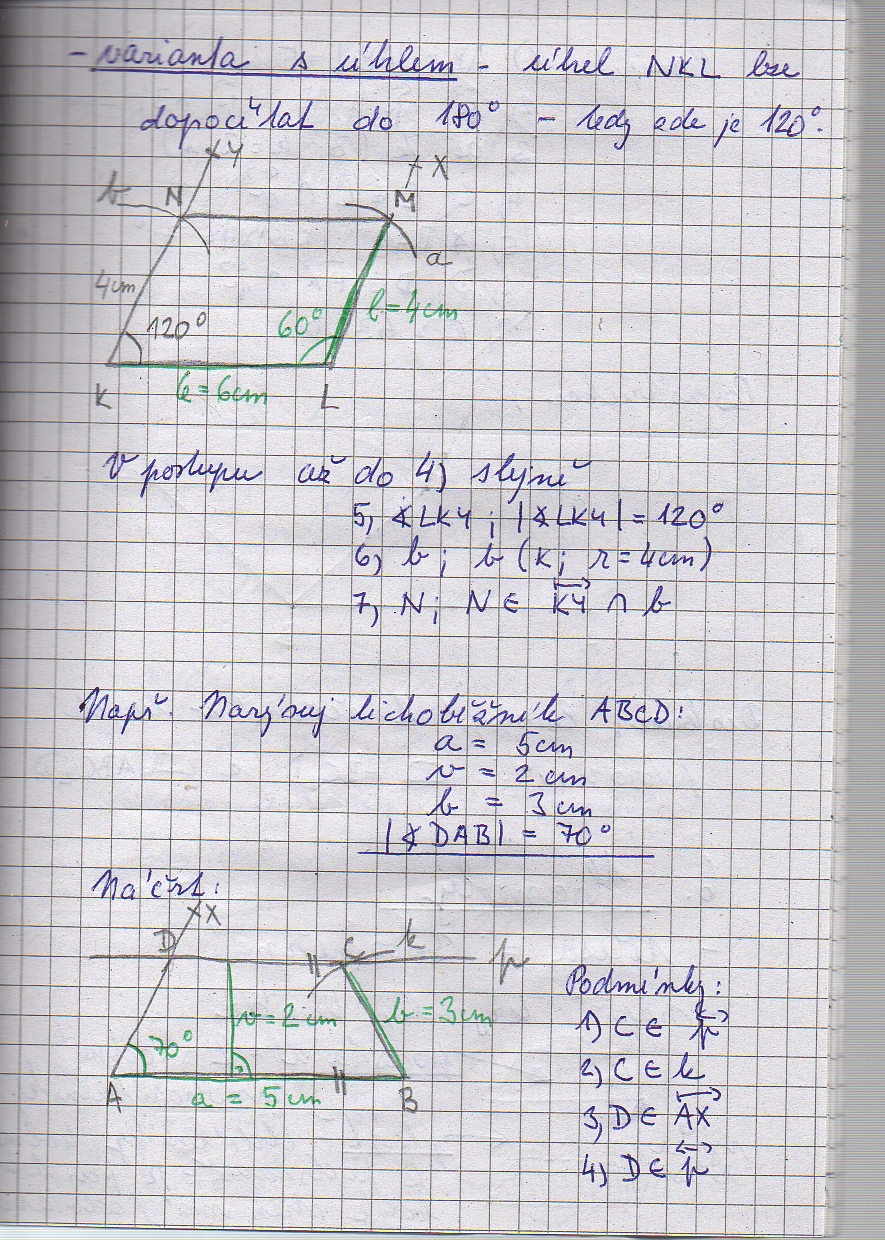 - varianta s úhlem - úhel NKL lze
dopočítat do 180° - tedy zde je 120°.
Y
X
b
N
M
a
4cm
120°
60°
l=4cm
K
k=6cm
L
V postupu až do 4) stejně
5, ∢LKY ; |∢LKY| = 120°
6) b; b (K; r=4cm)
7, N; N ∈ KY ∩ b
Např. Narýsuj lichoběžník ABCD:
a = 5cm
v = 2cm
b = 3cm
|∢DAB| = 70°
Náčrt:
X
D
C
k
p
v=2cm
b=3cm
70°
A
a = 5cm
B
Podmínky:
1) C ∈ p
2, C ∈ k
3, D ∈ AX
4) D ∈ p